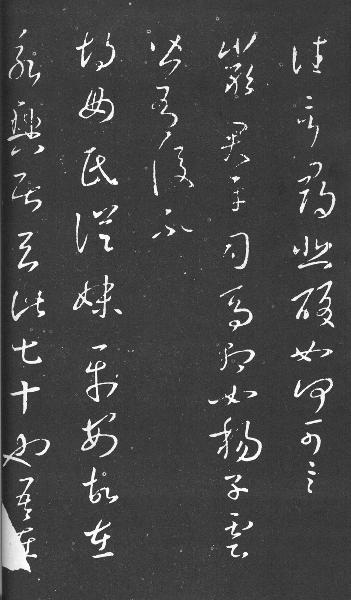 往言尋悲酸如何可言
嚴君平司馬相如揚子雲
皆有後不
胡母氏從妹平安故在
永興居去此七十也吾在